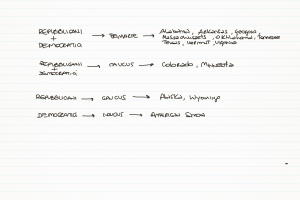 REPUBBLICANI + DEMOCRATICI → PRIMARIE → Alabama, Arkansas, Georgia
Massachusetts, Oklahoma, Tennessee
Texas, Vermont, Virginia
REPUBBLICANI + DEMOCRATICI → CAUCUS → Colorado, Minnesota
REPUBBLICANI → CAUCUS → Alaska, Wyoming
DEMOCRATICI → CAUCUS →